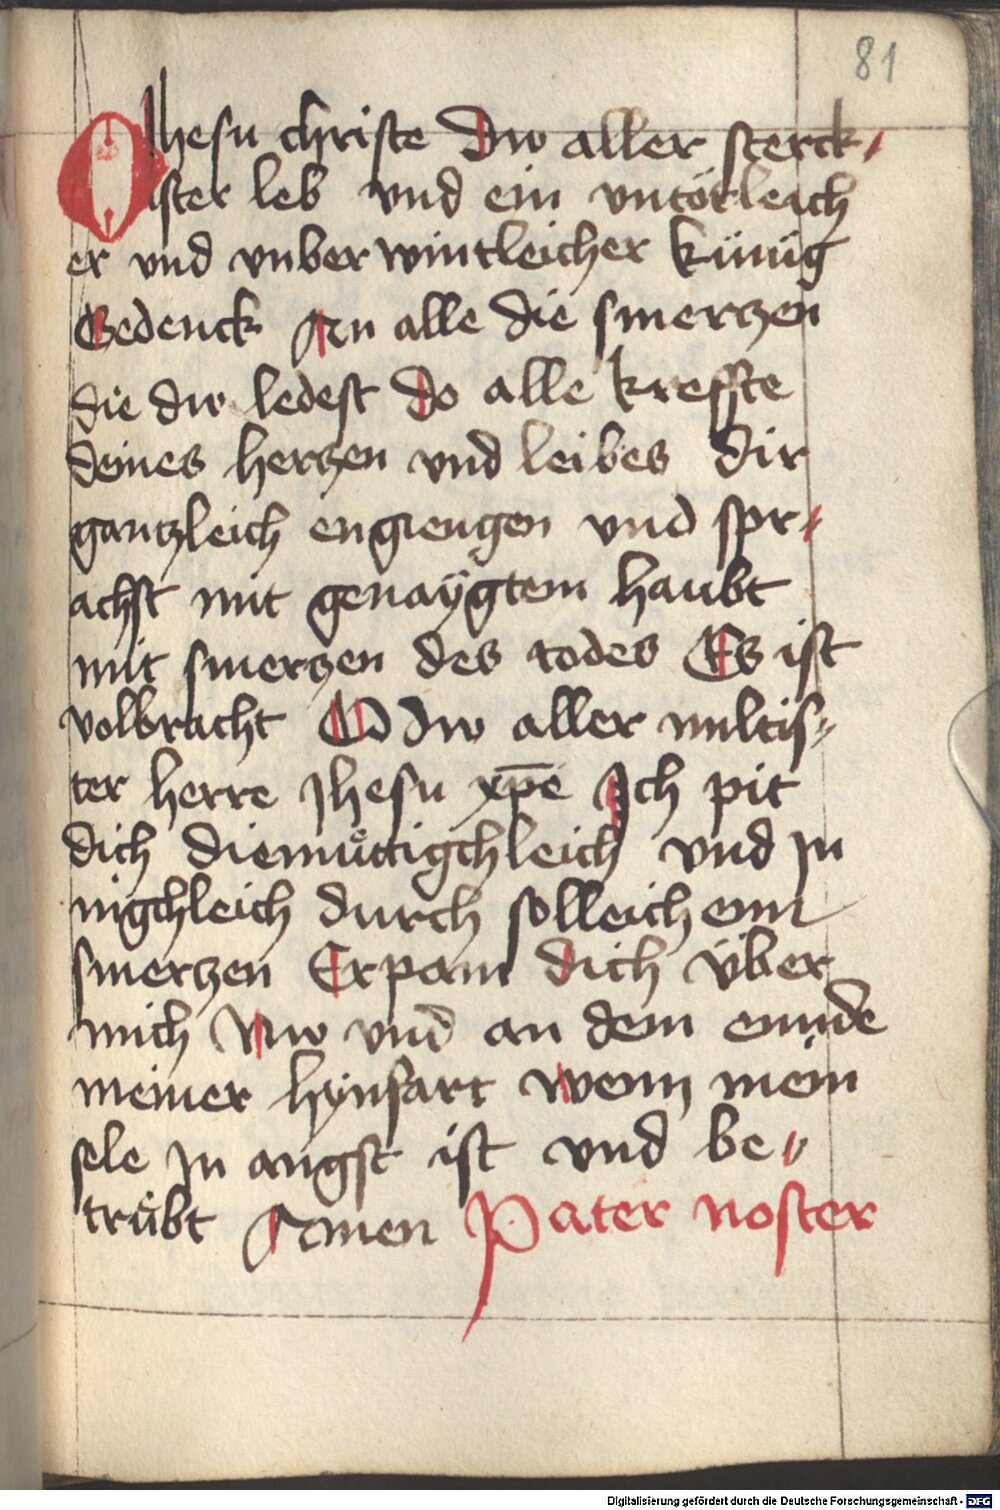 81
O Jhesu christe Dw aller sterck-
ister leb vnd ein vntötleich
er vnd vnberwintleicher künig
Gedenck An alle die smerczen
die dw ledest do alle kreffte
deines herczen vnd leibes dir
gantzleich engiengen vnd spr-
achst mit genaÿgtem haubt
mit smerczen des todes Es ist
volbracht O Dw aller miltis-
ter herre Jhesu xp̅e Ich pit
dich diemůttigchleich vnd jn
nigchleich durch solleichenn
smerczen Erparm dich über
mich Nw vnd an dem ennde
meiner hÿnfart wenn mein
sele jn angst ist vnd be-
trůbt Amen Pater noster
Digitalisierung gefördert durch die Deutsche Forschungsgemeinschaft - DFG